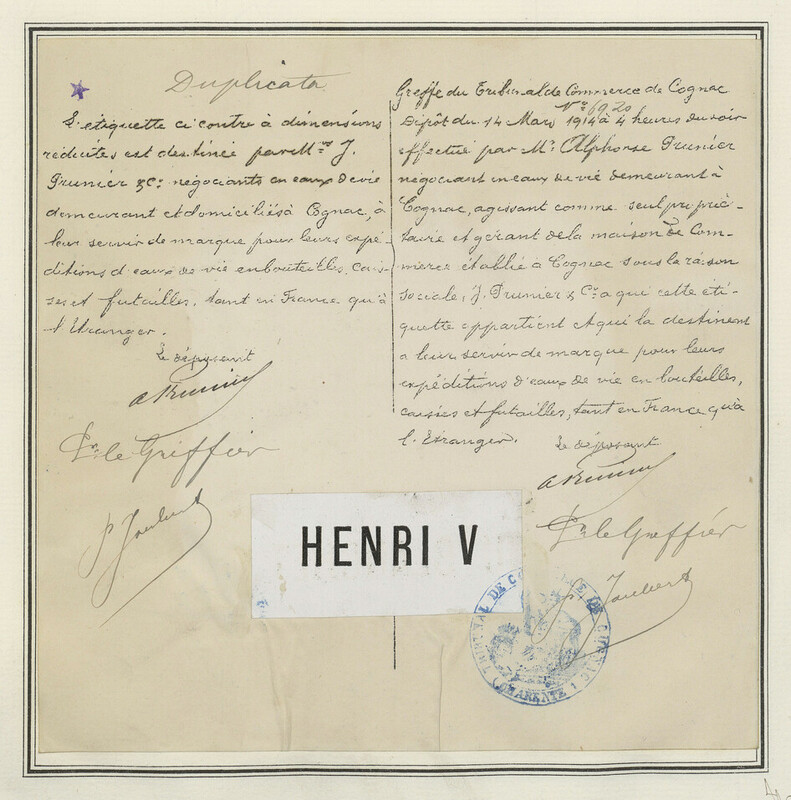 Duplicata
L'etiquette ci contre à dimensions
réduites est destinée par Mrs J.
Prunier & Cie négociants en eaux de vie
demeurant et domiciliés à Cognac, à
leur servir de marque pour leurs expé-
ditions d'eaux de vie en bouteilles, cais-
ses et futailles, tant en France qu'à
l'Etranger.
Le déposant
A Prunier
Pr le Greffier
P. Joubert
Greffe du Tribunal de Commerce de Cognac
No 6920
Dépôt du 14 Mars 1914 à 4 heures du soir
effectué par Mr Alphonse Prunier
négociant en eaux de vie demeurant à
Cognac, agissant comme seul proprié-
taire et gérant de la maison de Com-
merce établie à Cognac sous la raison
sociale, J. Prunier & Cie à qui cette éti-
quette appartient et qui la destinent
a leur servir de marque pour leurs
expéditions d'eaux de vie en bouteilles,
caisses et futailles, tant en France qu'à
l'Etranger.
Le déposant
A Prunier
Pr le Greffier
P. Joubert
HENRI V
TRIBUNAL DE COMMERCE DE COGNAC
(CHARENTE)